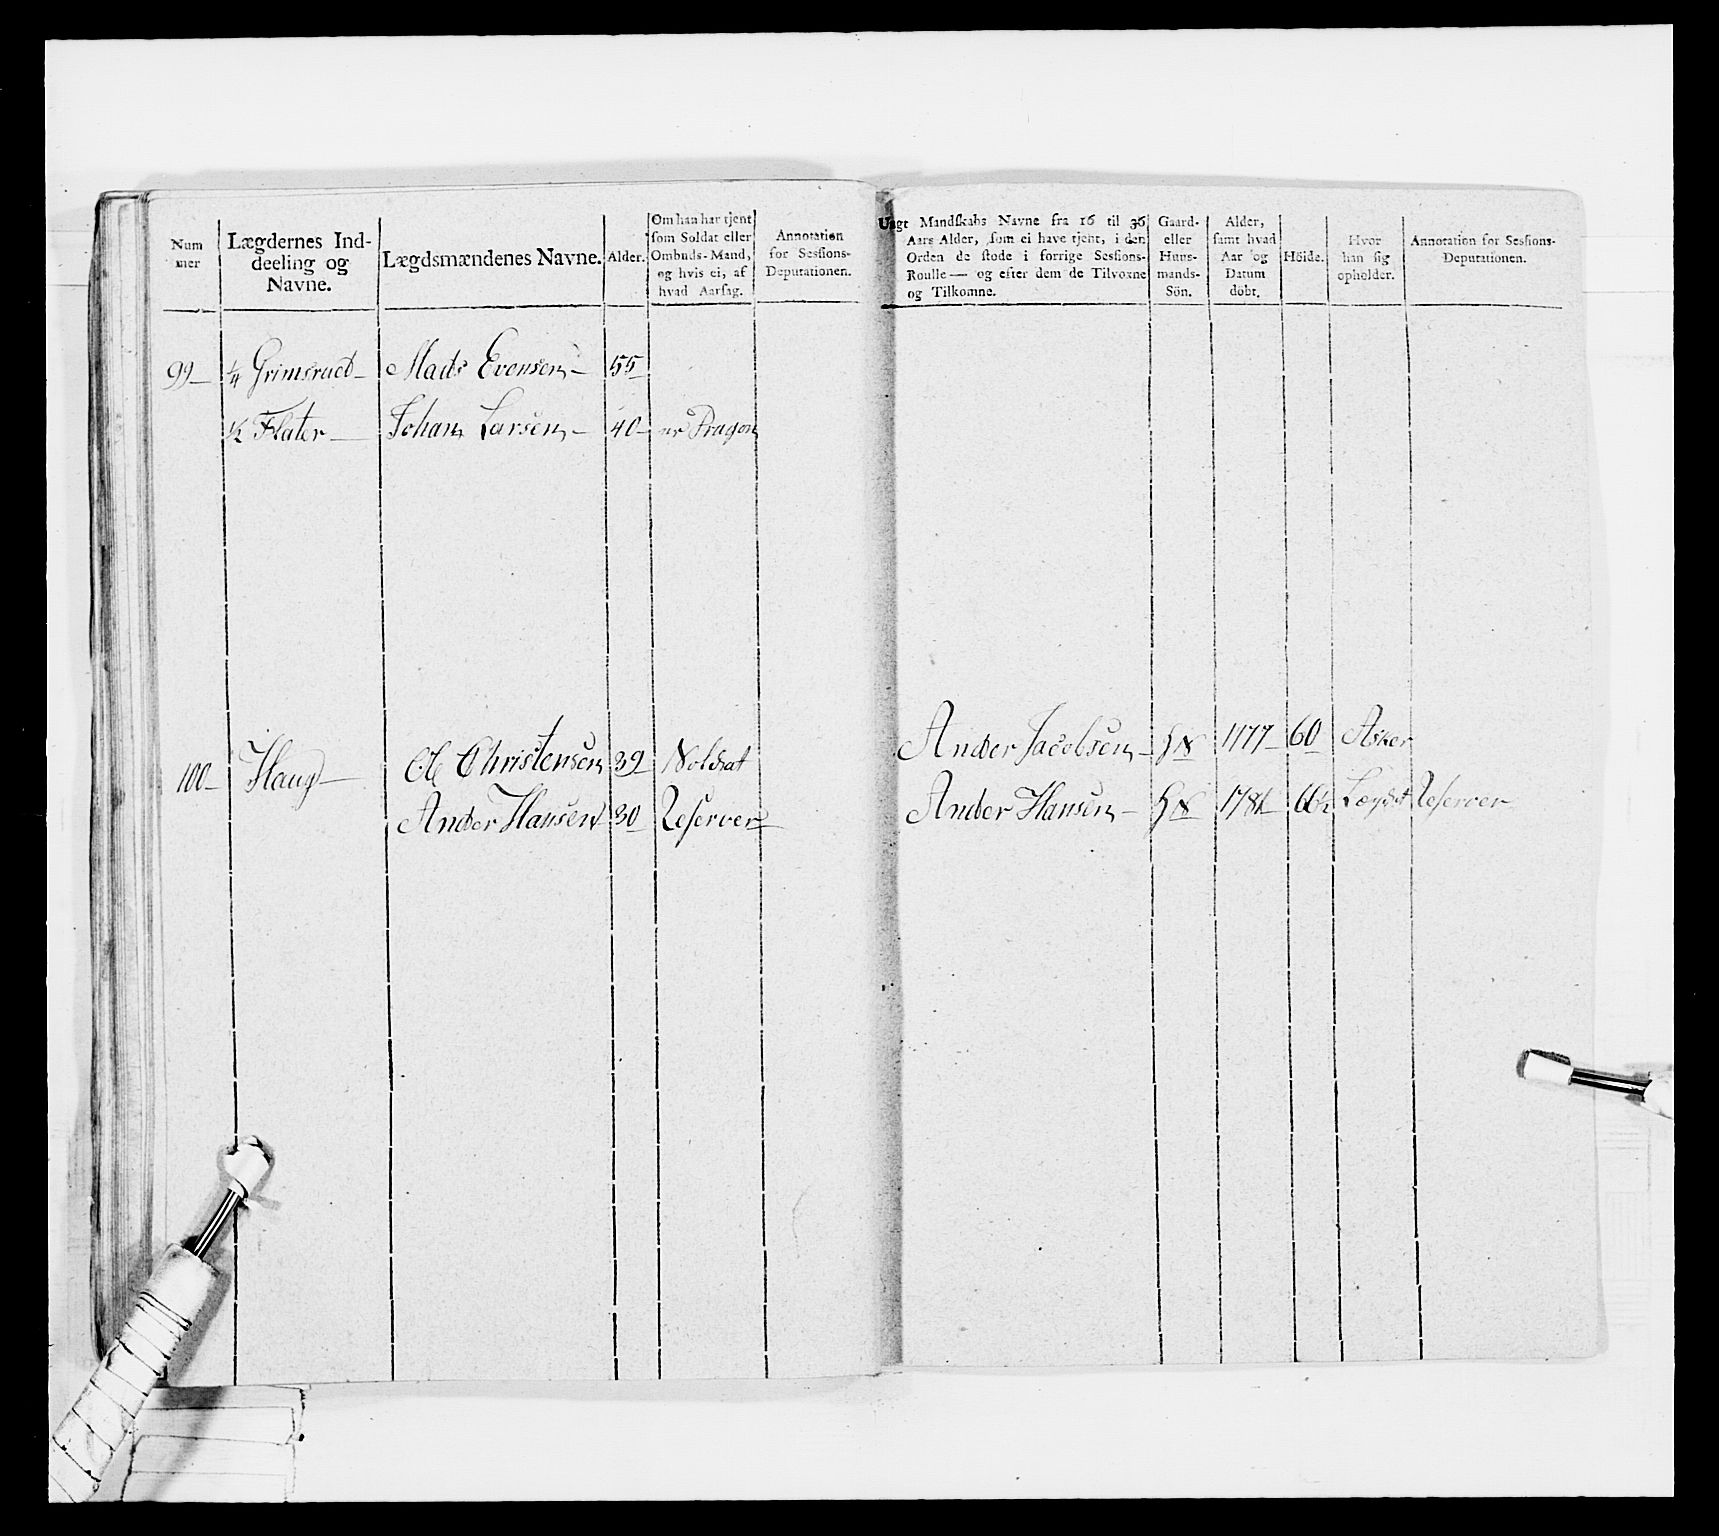 Num
mer
Lægdernes Ind-
deeling og
Navne.
Lægdsmændenes Navne.
Alder.
Om han har tjent
som Soldat eller
Ombuds-Mand,
og hvis ei, af
hvad Aarsag.
Annotation
for Sessions-
Deputationen.
Ungt Mandskabs Navne fra 16 til 36
Aars Alder, som ei have tjent, i den
Orden de stode i forrige Sessions-
Roulle — og efter dem de Tilvoxne
og Tilkomne.
Gaard-
eller
Huus-
mands-
Sön.
Alder,
samt hvad
Aar og
Datum
döbt.
Höide.
Hvor
han sig
opholder.
Annotation for Sessions-
Deputationen.
99 — ¼ Grimsrud — Mads Evensen — 55
½ Flater — Johan Larsen — 40 — er Dragon
100 — Haug — Ole Christensen 39 Soldat
Ander Hansen 30 Reserver
Ander Jacobsen — HS 1777 60 Asker
Ander Hansen — HS Lægdet Reserver